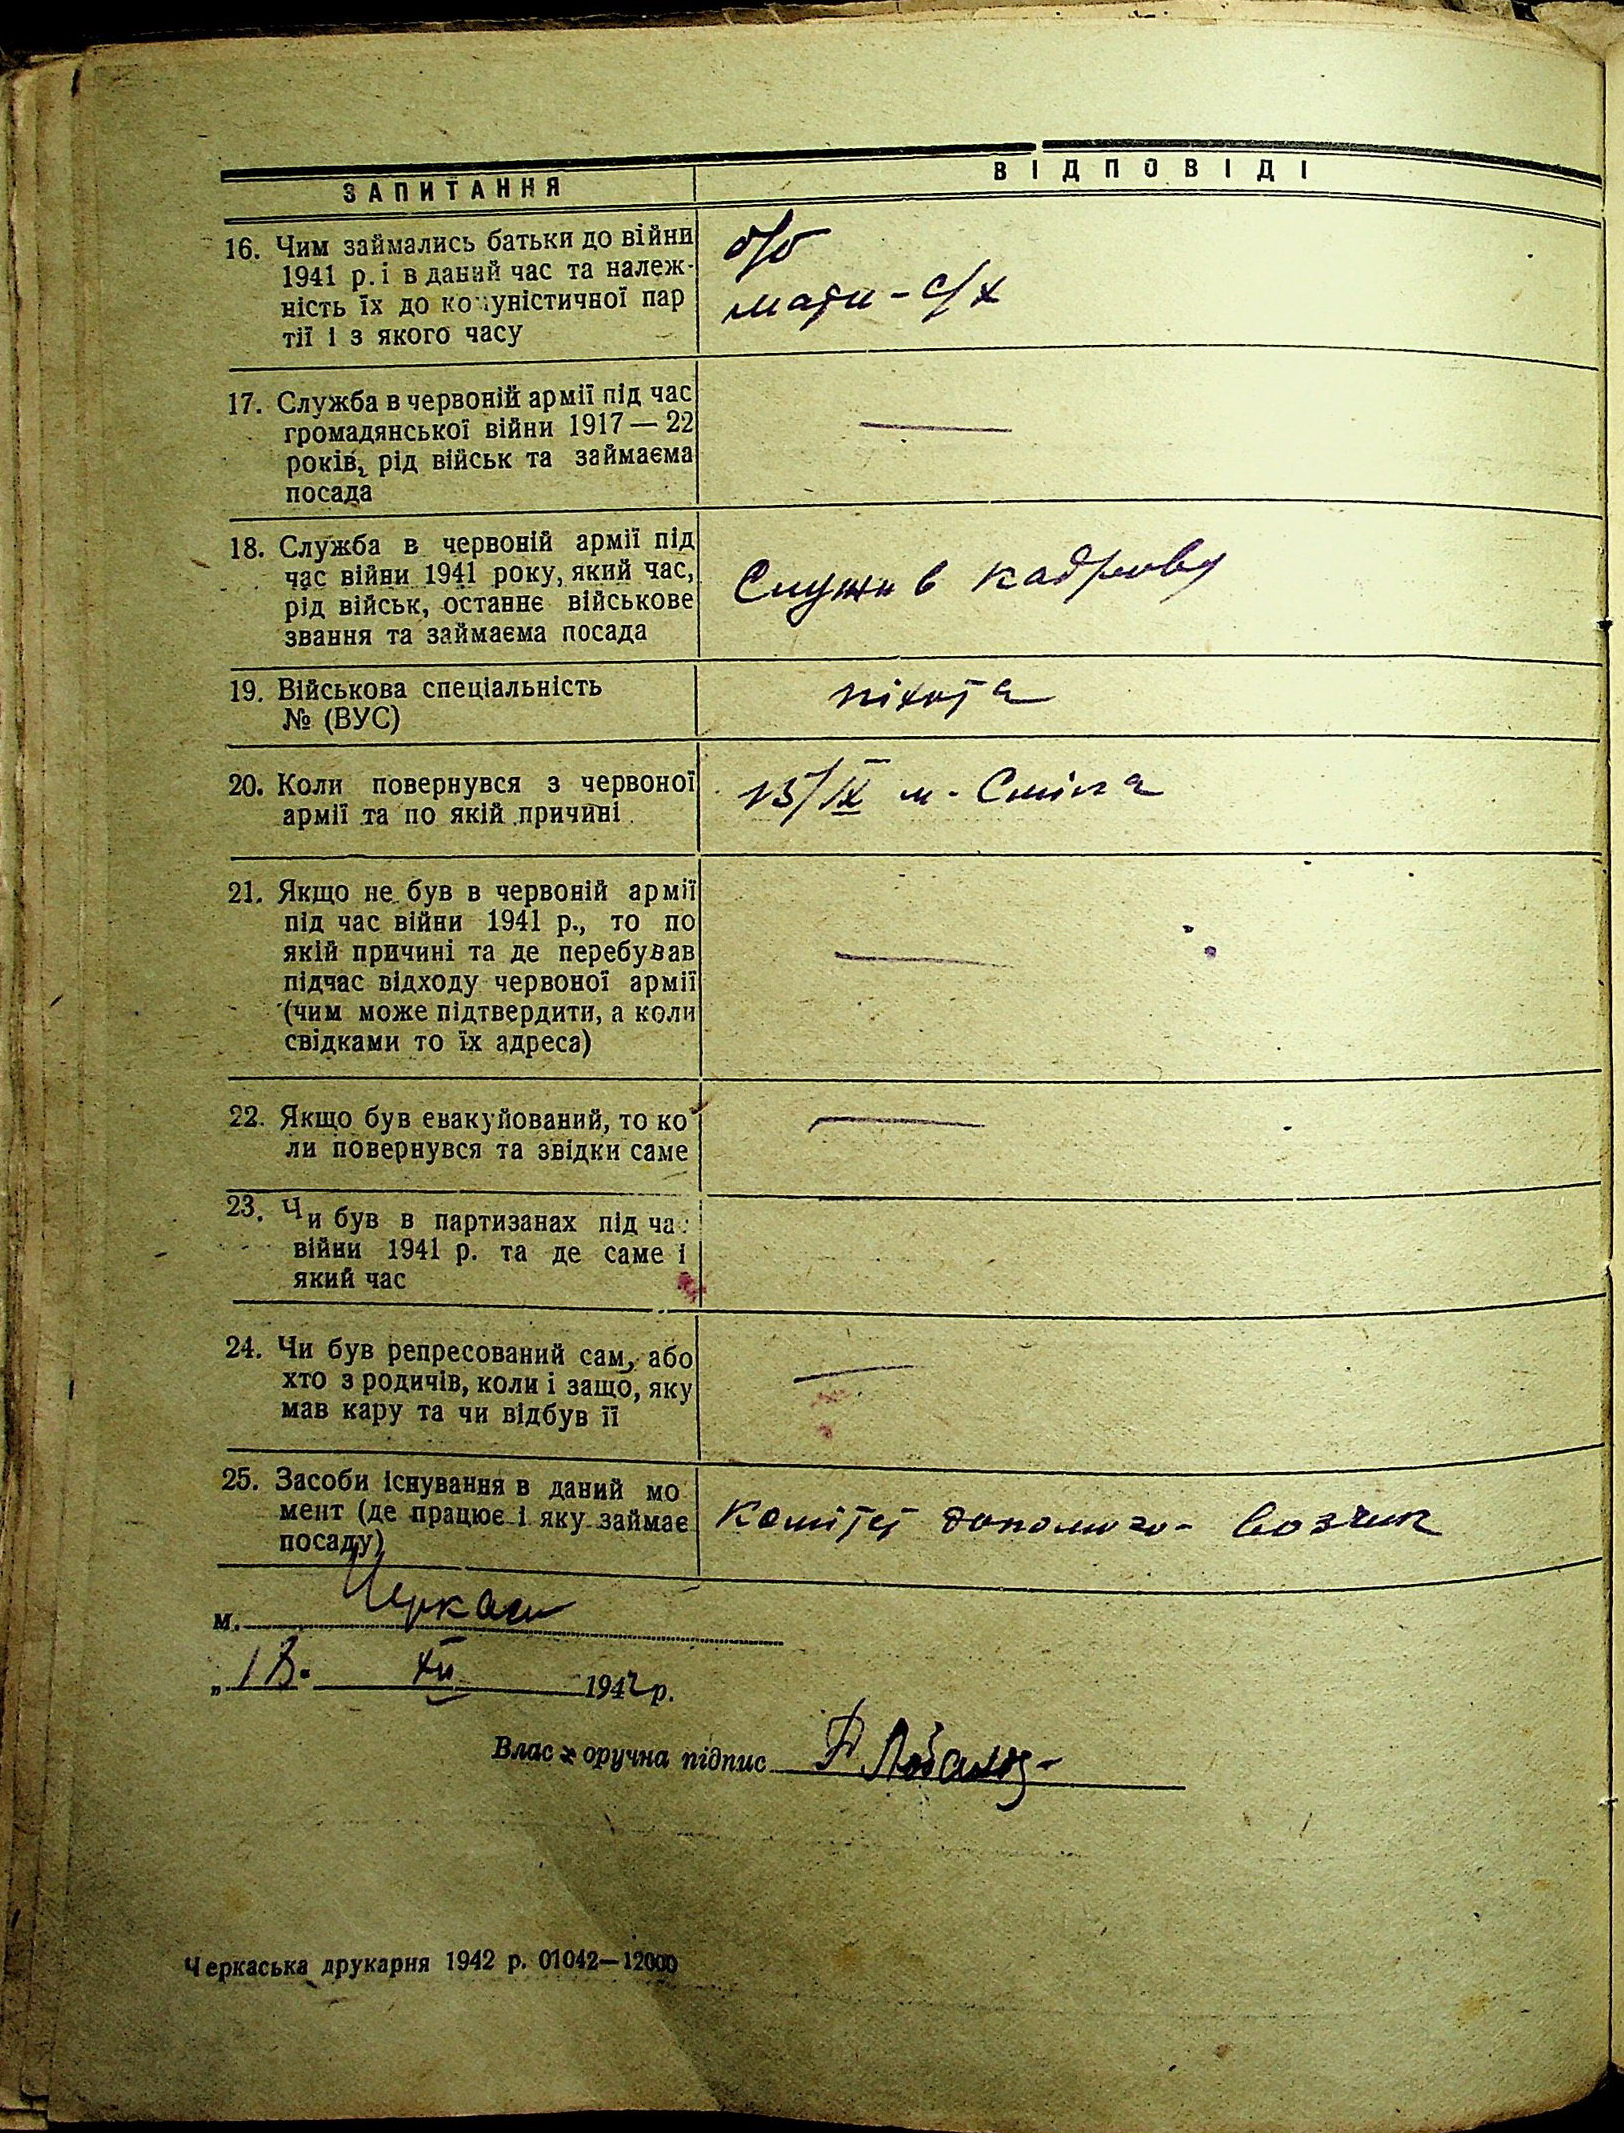 ЗАПИТАННЯ
ВІДПОВІДІ
16. Чим займались батьки до війни
1941 р. і в даний час та належ-
ність їх до комуністичної пар
тії і з якого часу
б/б
мати - с/х
17. Служба в червоній армії під час
громадянської війни 1917 — 22
років, рід військ та займаєма
посада
—
18. Служба в червоній армії під
час війни 1941 року, який час,
рід військ, останнє військове
звання та займаєма посада
Служив кадрову
19. Військова спеціальність
№ (ВУС)
піхота
20. Коли повернувся з червоної
армії та по якій причині
15/IX м. Сміла
21. Якщо не був в червоній армії
під час війни 1941 р., то по
якій причині та де перебував
підчас відходу червоної армії
(чим може підтвердити, а коли
свідками то їх адреса)
—
22. Якщо був евакуйований, то ко
ли повернувся та звідки саме
—
23. Чи був в партизанах під час
війни 1941 р. та де саме і
який час
24. Чи був репресований сам, або
хто з родичів, коли і защо, яку
мав кару та чи відбув її
—
25. Засоби існування в даний мо
мент (де працює і яку займає
посаду)
Комітет допомоги - возчик
м. Черкаси
„18. XII 1942 р.
Власноручна підпис
Черкаська друкарня 1942 р. 01042—12000